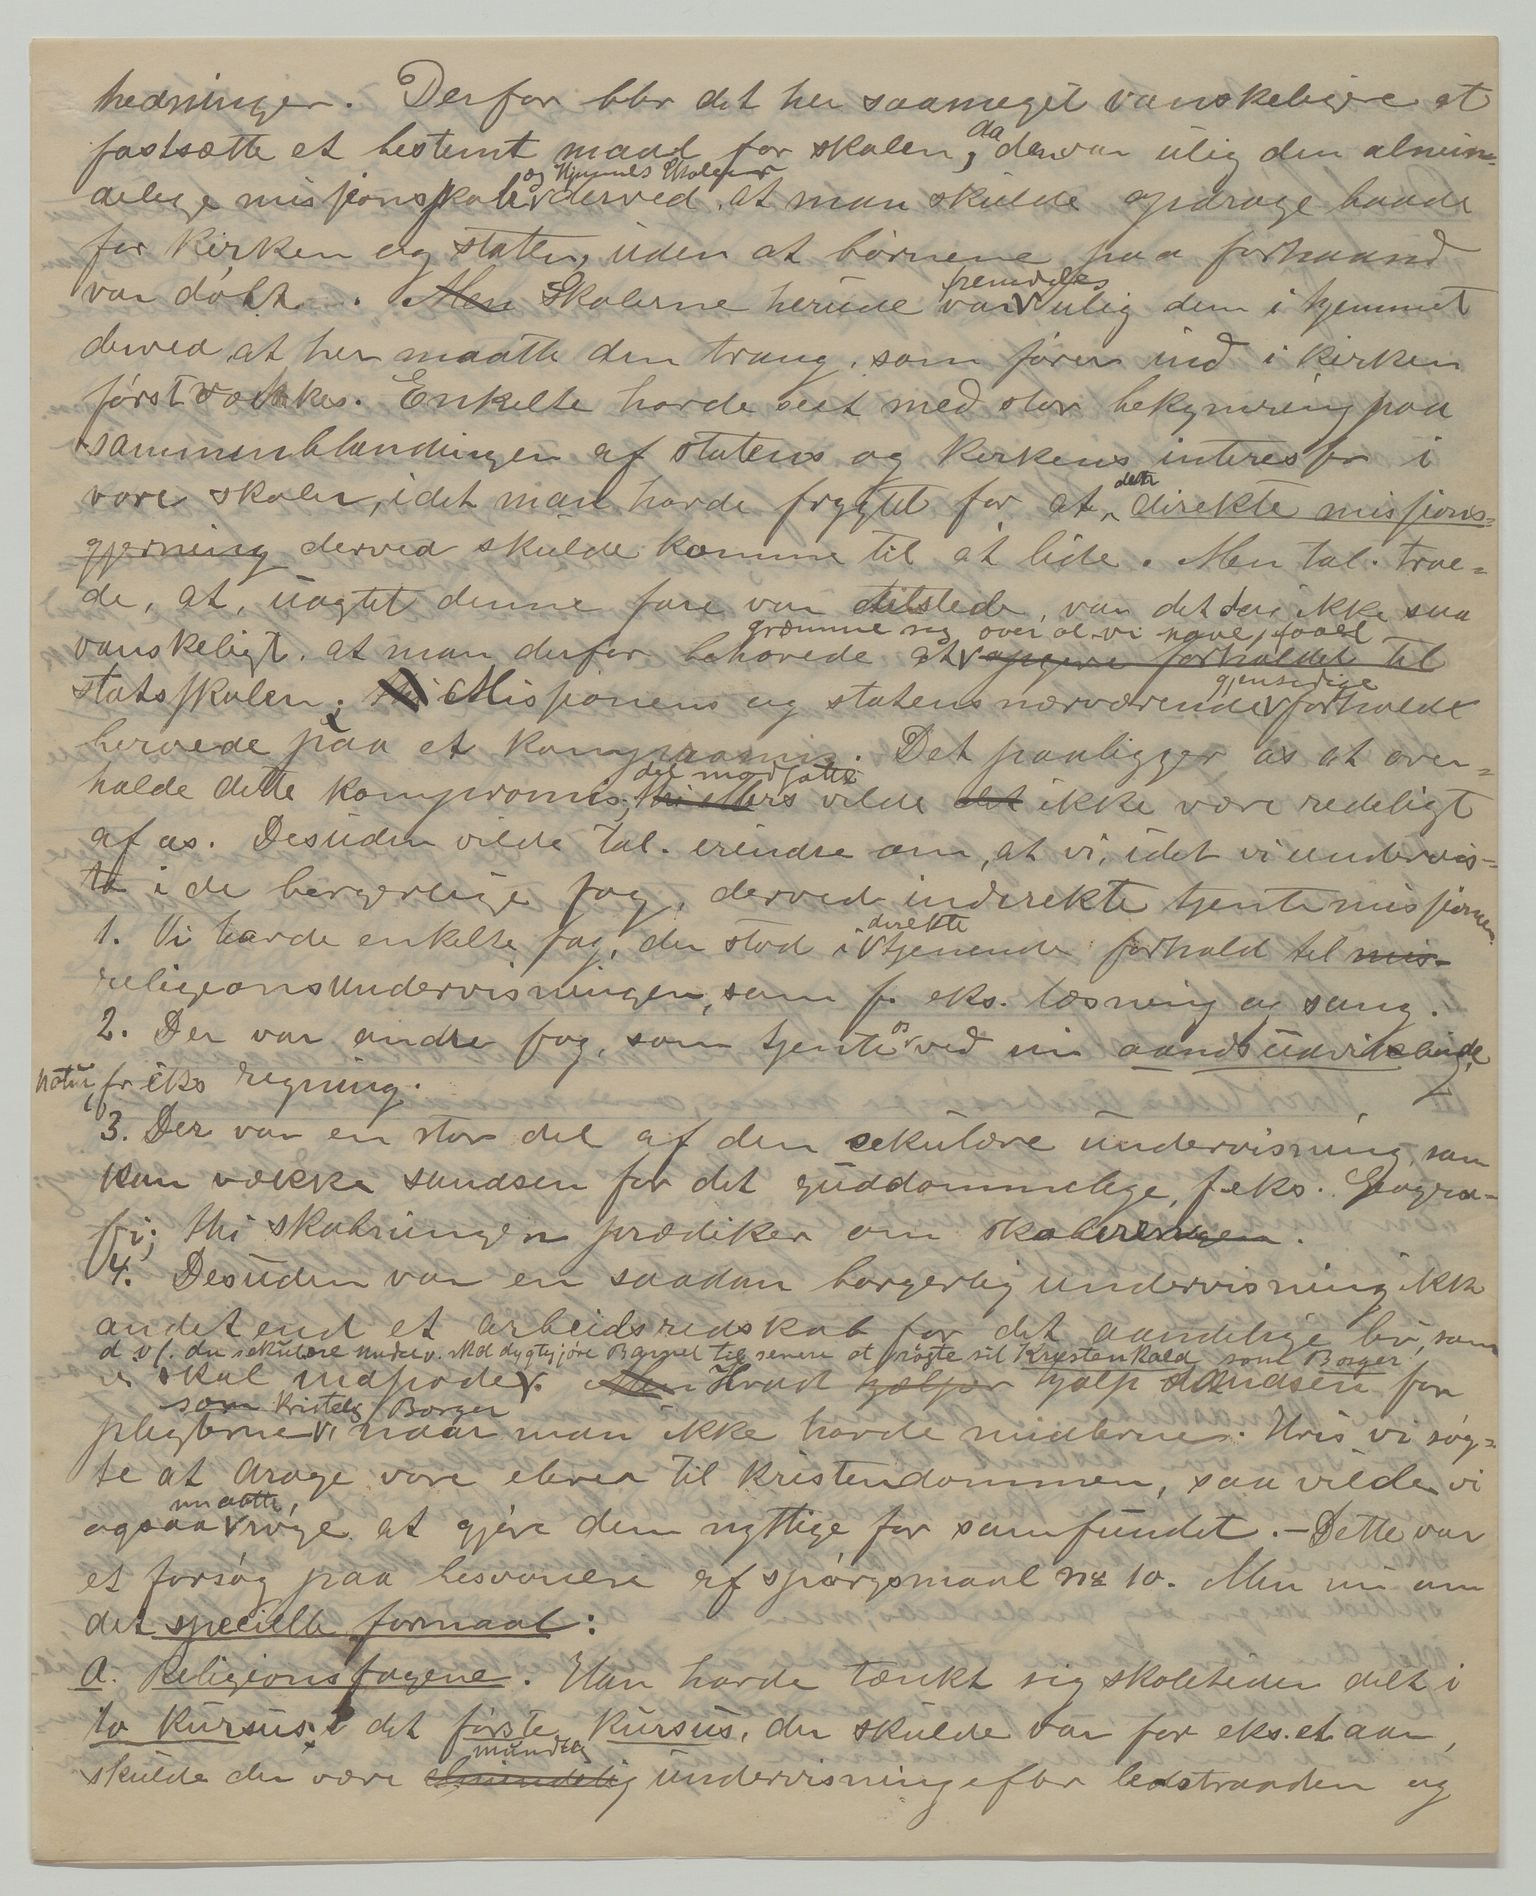 hedninger. Derfor blir det her saameget vanskeligere at
fastsætte et bestemt maal for skolen, da den var ulig den almin-
delige missionsskole og Hjemmets Skoler derved, at man skulde opdrage baade
for kirken og staten, uden at børnene paa forhaand
var døbt. Men Skolerne herude var fremdeles ulig dem i hjemmet
derved at her maatte den trang, som fører ind i kirken
først vækkes. Enkelte havde seet med stor bekymring paa
sammenblandingen af statens og kirkens interesser i
vore skoler, idet man havde frygtet for at den direkte missions-
gjerning derved skulde komme til at lide. Men tal. troe-
de, at, uagtet denne fare var tilstede, var det dog ikke saa
vanskeligt, at man derfor behøvede at græmme sig over at vi have faaet opgive forholdet til
statsskolen. Missionens og statens nærværende gjensidige forhold
beroede paa et kompromis. Det paaligger os at over-
holde dette kompromis, thi ellers det modsatte vilde det ikke være redeligt
af os. Desuden vilde tal. erindre om, at vi, idet vi undervis-
te i de borgerlige fag, derved indirekte tjente missionen.
1. Vi havde enkelte fag, der stod i direkte tjenende forhold til mis-
religionsundervisningen, som f. eks. læsning og sang.
2. Der var andre fag, som tjente os ved sin aandsudviklende
natur, f. eks regning.
3. Der var en stor del af den sekulære undervisning, som
kan vække sandsen for det guddommelige, f.eks. Geogra-
fi; thi skabningen prædiker om skaberen.
4. Desuden var en saadan borgerlig undervisning ikke
andet end et arbeidsredskab for det aandelige liv, som
d.v.s. den sekulære underv. skal dygtiggjøre Barnet til senere at røgte sit Kristenkald som Borger
vi skal indpode. Men Hvad hjælper hjalp sandsen for
som kristelig Borger
pligterne, naar man ikke havde midlerne. Hvis vi søg-
te at drage vore elever til kristendommen, saa vilde vi
ogsaa maatte søge at gjøre dem nyttige for samfundet. - Dette var
et forsøg paa besvarelse af spørgsmaal no 10. Men nu om
det specielle formaal:
A. Religionsfagene. Han havde tænkt sig skoletiden delt i
to kursus; i det første kursus, der skulde var for eks. et aar,
skulde der være almindelig mundtlig undervisning efter ledetraaden og